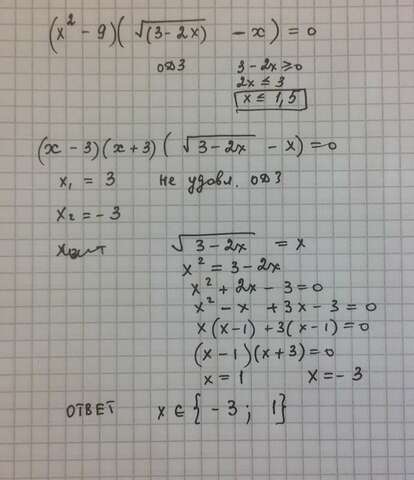 (x² - 9)(√(3-2x) - x) = 0
ОДЗ 3 - 2x ≥ 0
2x ≤ 3
x ≤ 1,5
(x - 3)(x + 3)(√3-2x - x) = 0
x₁ = 3 не удовл. ОДЗ
x₂ = - 3
√3-2x = x
x² = 3 - 2x
x² + 2x - 3 = 0
x² - x + 3x - 3 = 0
x(x-1) + 3(x-1) = 0
(x-1)(x+3) = 0
x = 1 x = - 3
ОТВЕТ x ∈ {-3; 1}